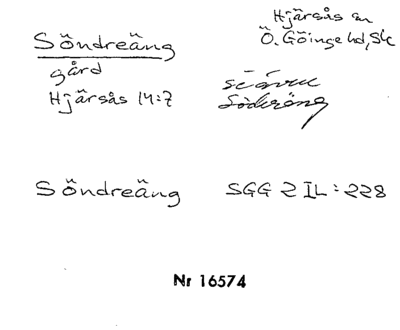 Söndreäng
gård
Hjärsås 14:7
Hjärsås sn
Ö. Göinge hd, Sk
se även
Söderäng
Söndreäng
SGG 2 IL:228
Nr 16574